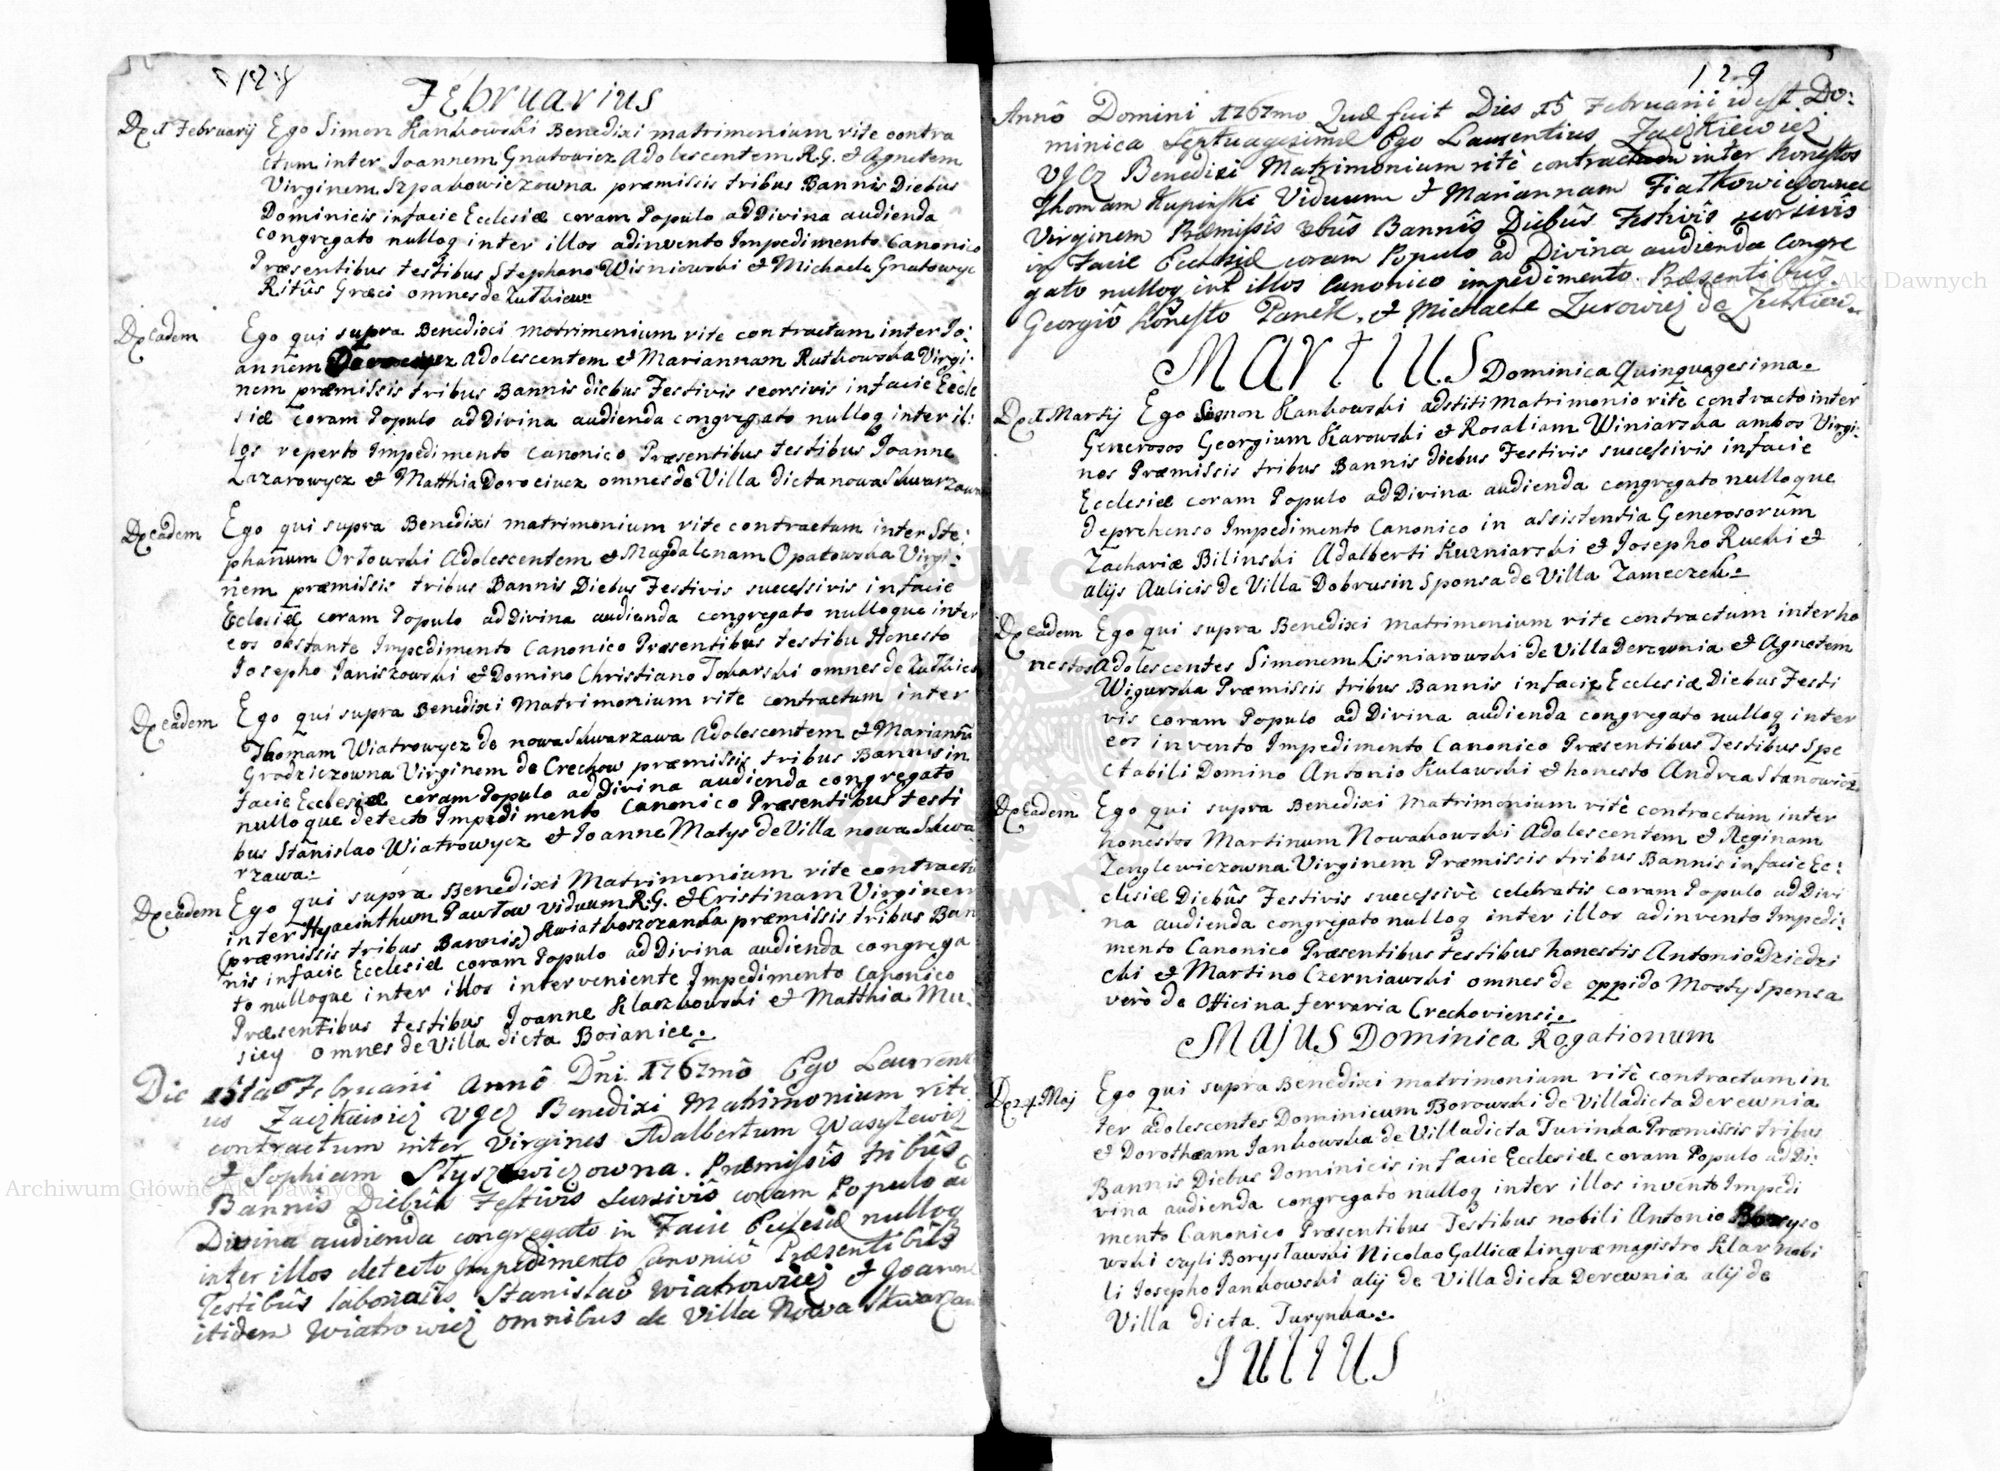 128
Februarius
Die 1 Februarij Ego Simon Kankowski Benedixi matrimonium rite contra
ctum inter Joannem Gnatowicz Adolescentem R.G. et Agnetem
Virginem Szpakowiczowna præmissis tribus Bannis Diebus
Dominicis in facie Ecclesiæ coram Populo ad Divina audienda
congregato nulloq inter illos adinvento Impedimento Canonico
Præsentibus testibus Stephano Wisniowski et Michaele Gnatowyc
Ritûs Græci omnes de Zulkiew
Die eadem Ego qui supra Benedixi matrimonium rite contractum inter Jo:
annem Adolescentem et Mariannam Rutkowska Virgi:
nem præmissis tribus Bannis diebus Festivis seorsivis in facie Eccle
siæ coram Populo ad Divina audienda congregato nulloq inter il:
los reperto Impedimento Canonico Præsentibus testibus Joanne
Lazarowycz et Matthia Dorociucz omnes de Villa dicta nowa Skwarzawa
Die eadem Ego qui supra Benedixi matrimonium rite contractum inter Ste:
phanum Orłowski Adolescentem et Magdalenam Opatowska Virgi:
nem præmissis tribus Bannis Diebus Festivis successivis in facie
Eclesiæ coram Populo ad Divina audienda congregato nulloque inter
eos obstante Impedimento Canonico Præsentibus testibu Honesto
Josepho Janiszowski et Domino Christiano Tokarski omnes de Zulkiew
Die eadem Ego qui supra Benedixi Matrimonium rite contractum inter
Thomam Wiatrowycz de nowa Skwarzawa Adolescentem et Mariannã
Grodziczowna Virginem de Crechow præmissis tribus Bannis in
facie Ecclesiæ coram Populo ad Divina audienda congregato
nulloque detecto Impedimento Canonico Præsentibus testi
bus Stanislao Wiatrowycz et Joanne Matys de Villa nowa Skwa
rzawa:
Die eadem Ego qui supra Benedixi Matrimonium rite contractũ
inter Hyacinthum Pawłow viduum R.G. et Cristinam Virginem
(præmissis tribus Bannis) Kwiatkoszczanka præmissis tribus Ban
nis in facie Ecclesiæ coram Populo ad Divina audienda congrega
to nulloque inter illos interveniente Impedimento Canonico
Præsentibus testibus Joanne Klaczkowski et Matthia Mu:
siey omnes de Villa dicta Boianice.
Die 15ta Februarii Annô Dni. 1767mô Ego Laurenti
us Zaczkiewicz VGCZ Benedixi Matrimonium rite
contractum inter Virgines Adalbertum Wasylewicz
et Sophiam Styszkwiczowna. Præmissis tribûs
Bannis Diebûs Festivis sursivis coram Populo ad
Divina audienda congregato in Facie Ecclesiæ nulloq
inter illos detecto Impedimento Canonicô Præsentibûs
Testibûs laboriosis Stanislao Wiatrowicz et Joanne
itidem Wiatrowicz omnibus de Villa Nowa Skwarzaw
129
Annô Domini 1767mo Quæ fuit Dies 15 Februarii id est Do:
minica Septuagesimæ Ego Laurentius Zaczkiewicz
VGCZ Benedixi Matrimonium ritè contractum inter honestos
Thomam Kupinski Viduum et Mariannam Fiatkowiczownæ
Virginem Præmissis tribûs Bannis Diebûs Festivis seorsivis
in Facie Ecclesiæ coram Populo ad Divina audienda Congre
gato nulloq int illos Canonico impedimento Præsentibûs
Georgiô honesto Panek, et Michaele Zurowicz de Zulkiew.
MARTIUS Dominica Quinquagesima.
Die 1 Martij Ego Simon Kankowski adstiti Matrimonio ritè contracto inter
Generosos Georgium Karowski et Rosaliam Winiarska ambos Virgi:
nes Præmissis tribus Bannis diebus Festivis successivis in facie
Ecclesiæ coram Populo ad Divina audienda congregato nulloque
deprehenso Impedimento Canonico in assistentia Generosorum
Zachariæ Bilinski Adalberti Kuzniarski et Josepho Rucki et
alijs Aulicis de Villa Dobrusin Sponsa de Villa Zameczek
Die eadem Ego qui supra Benedixi matrimonium rite contractum inter ho
nestos Adolescentes Simonem Lisniarowski de Villa Derewnia et Agnetem
Wigurska Præmissis tribus Bannis in facie Ecclesiæ Diebus Festi
vis coram Populo ad Divina audienda congregato nulloq inter
eos invento Impedimento Canonico Præsentibus Testibus Spe
ctabili Domino Antonio Kulawski et honesto Andrea Stanowicz
Die eadem Ego qui supra Benedixi Matrimonium ritè contractum inter
honestos Martinum Nowakowski Adolescentem et Reginam
Zenglewiczowna Virginem Præmissis tribus Bannis in facie Ec:
clesiæ Diebûs Festivis successivè celebratis coram Populo ad Divi
na audienda congregato nulloq inter illos adinvento Impedi:
mento Canonico Præsentibus testibus honestis Antonio Dziedzi
cki et Martino Czerniawski omnes de oppido Mosty Sponsa
verò de Officina ferraria Crechoviensi
MAJUS Dominica Rogationum
Die 24 Maj Ego qui supra Benedixi matrimonium ritè contractum in
ter adolescentes Dominicum Borowski de Villa dicta Derewnia
et Dorotheam Jankowska de Villa dicta Turinka Præmissis tribus
Bannis Diebus Dominicis in facie Ecclesiæ coram Populo ad Di:
vina audienda congregato nulloq inter illos invento Impedi
mento Canonico Præsentibus Testibus nobili Antonio
wski czyli Borysławski Nicolao Gallicæ linguæ magistro Klar nobi
li Josepho Jankowski alij de Villa dicta Derewnia alij de
Villa dicta Turynka.
JULIUS
Archiwum Główne Akt Dawnych
Archiwum Główne Akt Dawnych